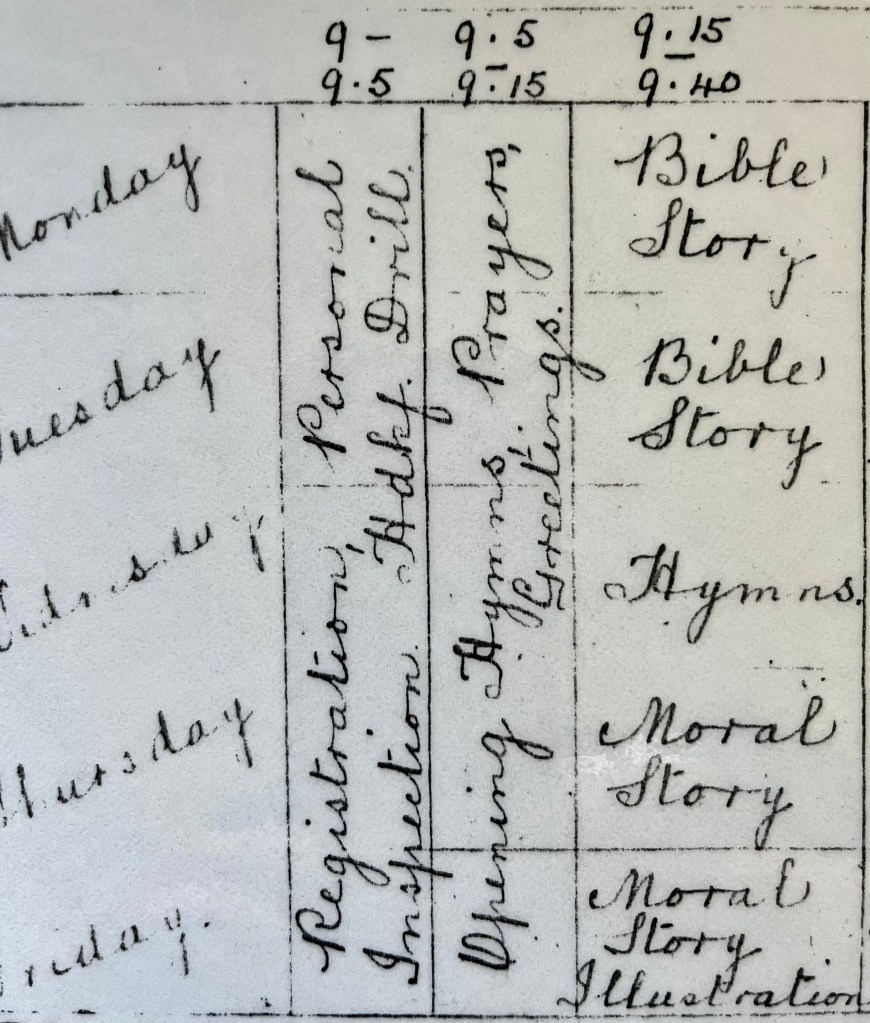 9 - 9.5
9.5 - 9.15
9.15 - 9.40
Monday
Tuesday
Wednesday
Thursday
Friday.
Registration, Personal
Inspection. Hdkf. Drill.
Opening Hymns, Prayers,
Greetings.
Bible
Story
Bible
Story
Hymns.
Moral
Story
Moral
Story
Illustration